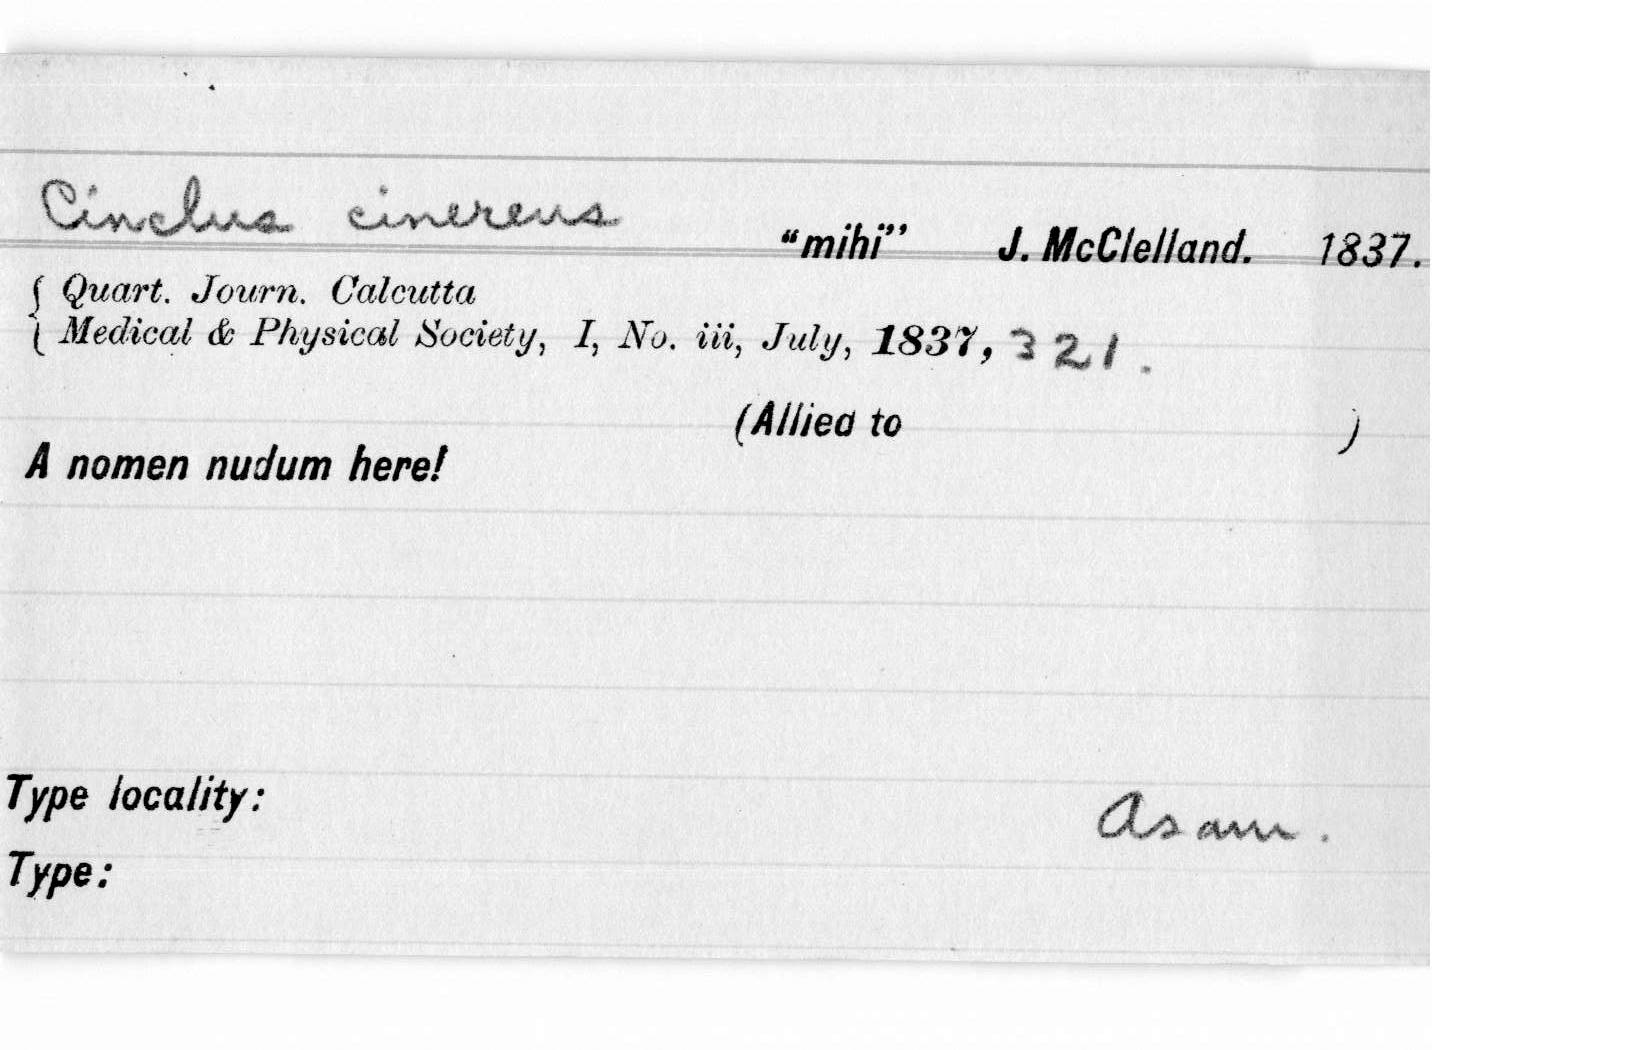 Cinclus cinereus "mihi" J. McClelland. 1837.
Quart. Journ. Calcutta
Medical & Physical Society, I, No. iii, July, 1837, 321.
(Allied to )
A nomen nudum here!
Type locality: Asam.
Type: